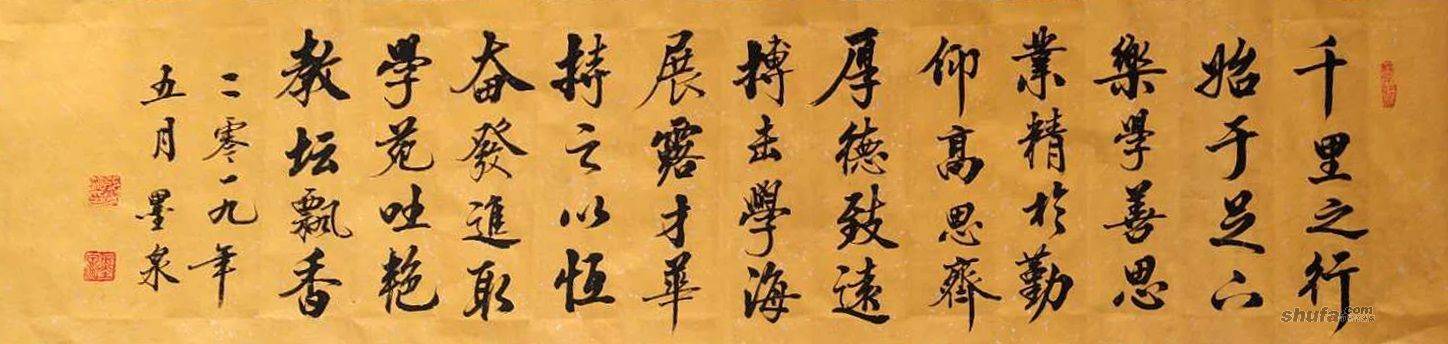 千里之行
始于足下
樂學善思
業精於勤
仰高思齊
厚德致遠
搏击學海
展露才華
持之以恆
奋發進取
學苑吐艳
教坛飄香
二零一九年
五月墨泉
shufa.com